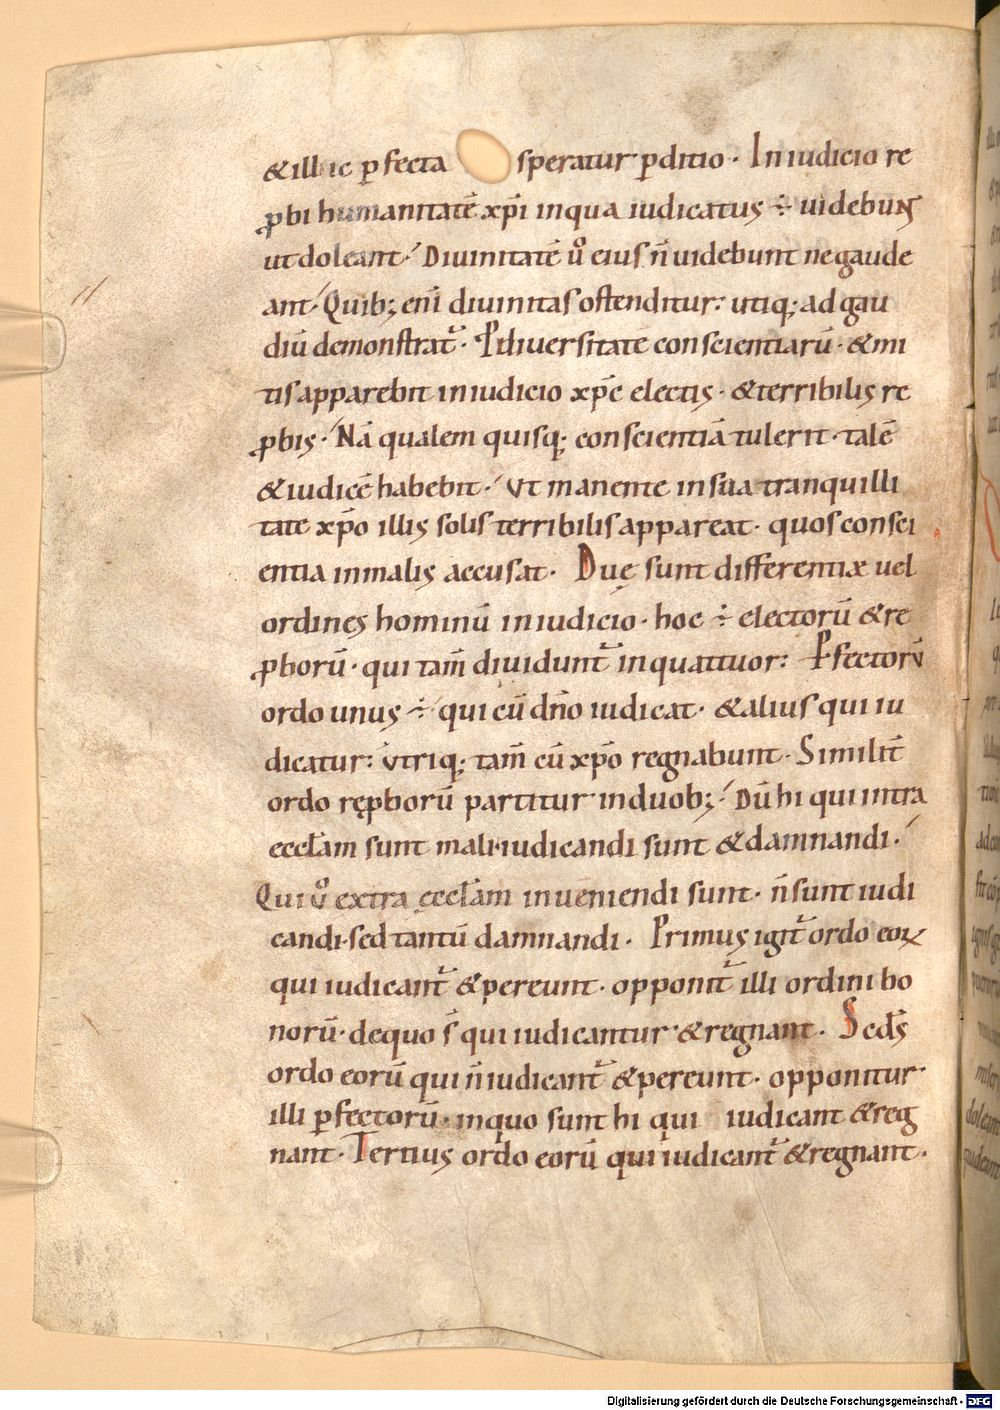 &illic ꝑfecta speratur ꝑditio· In iudicio re
ꝓbi humanitatē xp̄i inqua iudicatus ÷ uidebunt
ut doleant· Diuinitatē ů eius n̄ uidebunt ne gaude
ant· Quib; eni diuinitas ostenditur: utiq; ad gau
diū demonstrat᷑· P diuersitate conscientiarū· & mi
tis apparebit in iudicio xp̄c electis· & terribilis re
ꝓbis· Nā qualem quisq; conscientiā tulerit· talē
& iudicē habebit· Vt manente in sua tranquilli
tate xp̄o illis solis terribilis appareat· quos consci
entia in malis accusat· Duę sunt differentiæ uel
ordines hominū in iudicio· hoc ÷ electorū & re
ꝓborū· qui tam̄ diuidunt᷑ in quattuor: Ꝑfectorū
ordo unus ÷ qui cū dn̄o iudicat· & alius qui iu
dicatur: Vtriq; tam̄ cū xp̄o regnabunt· Similit̄
ordo ręꝓborū partitur in duob; Dū hi qui intra
eccłam sunt mali· iudicandi sunt & damnandi·
Qui ů extra ęccłam inueniendi sunt· n̄ sunt iudi
candi· sed tantū damnandi· Primus igit᷑ ordo eoꝝ
qui iudicant᷑ & pereunt· opponit᷑ illi ordini bo
norū· de quo s̄ qui iudicantur & regnant· Scd̄s
ordo eorū qui n̄ iudicant᷑ & pereunt· opponitur
illi ꝑfectorū· in quo sunt hi qui iudicant & reg
nant· Tertius ordo eorū qui iudicant᷑ & regnant·
Digitalisierung gefördert durch die Deutsche Forschungsgemeinschaft - DFG